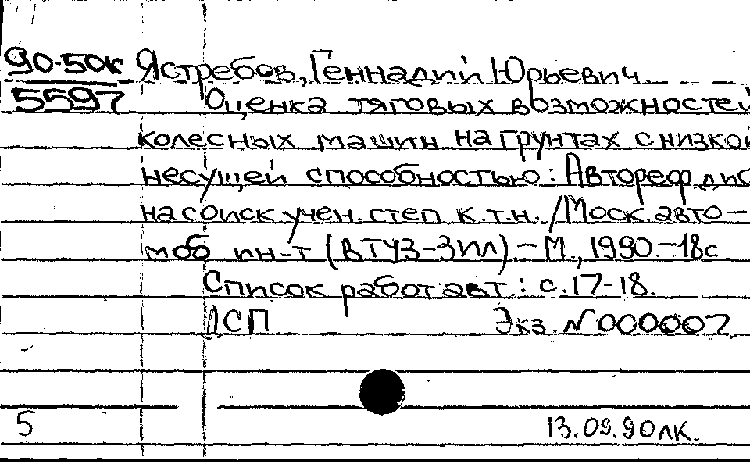 90-50к Ястребов, Геннадий Юрьевич
5597 Оценка тяговых возможностей
колесных машин на грунтах с низкой
несущей способностью: Автореф дис
на соиск учен. степ к.т.н. /Моск. авто-
моб ин-т (ВТУЗ-ЗИЛ) - М., 1990.-18с
Список работ авт: с.17-18.
ДСП Экз. N 000007
5 13.09.90 лк.